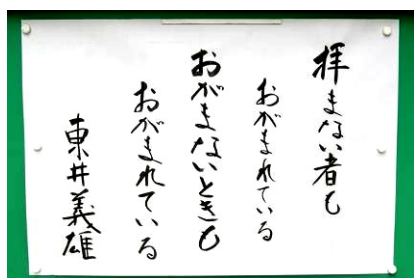 拝まない者も
おがまれている
おがまないときも
おがまれている
東井義雄